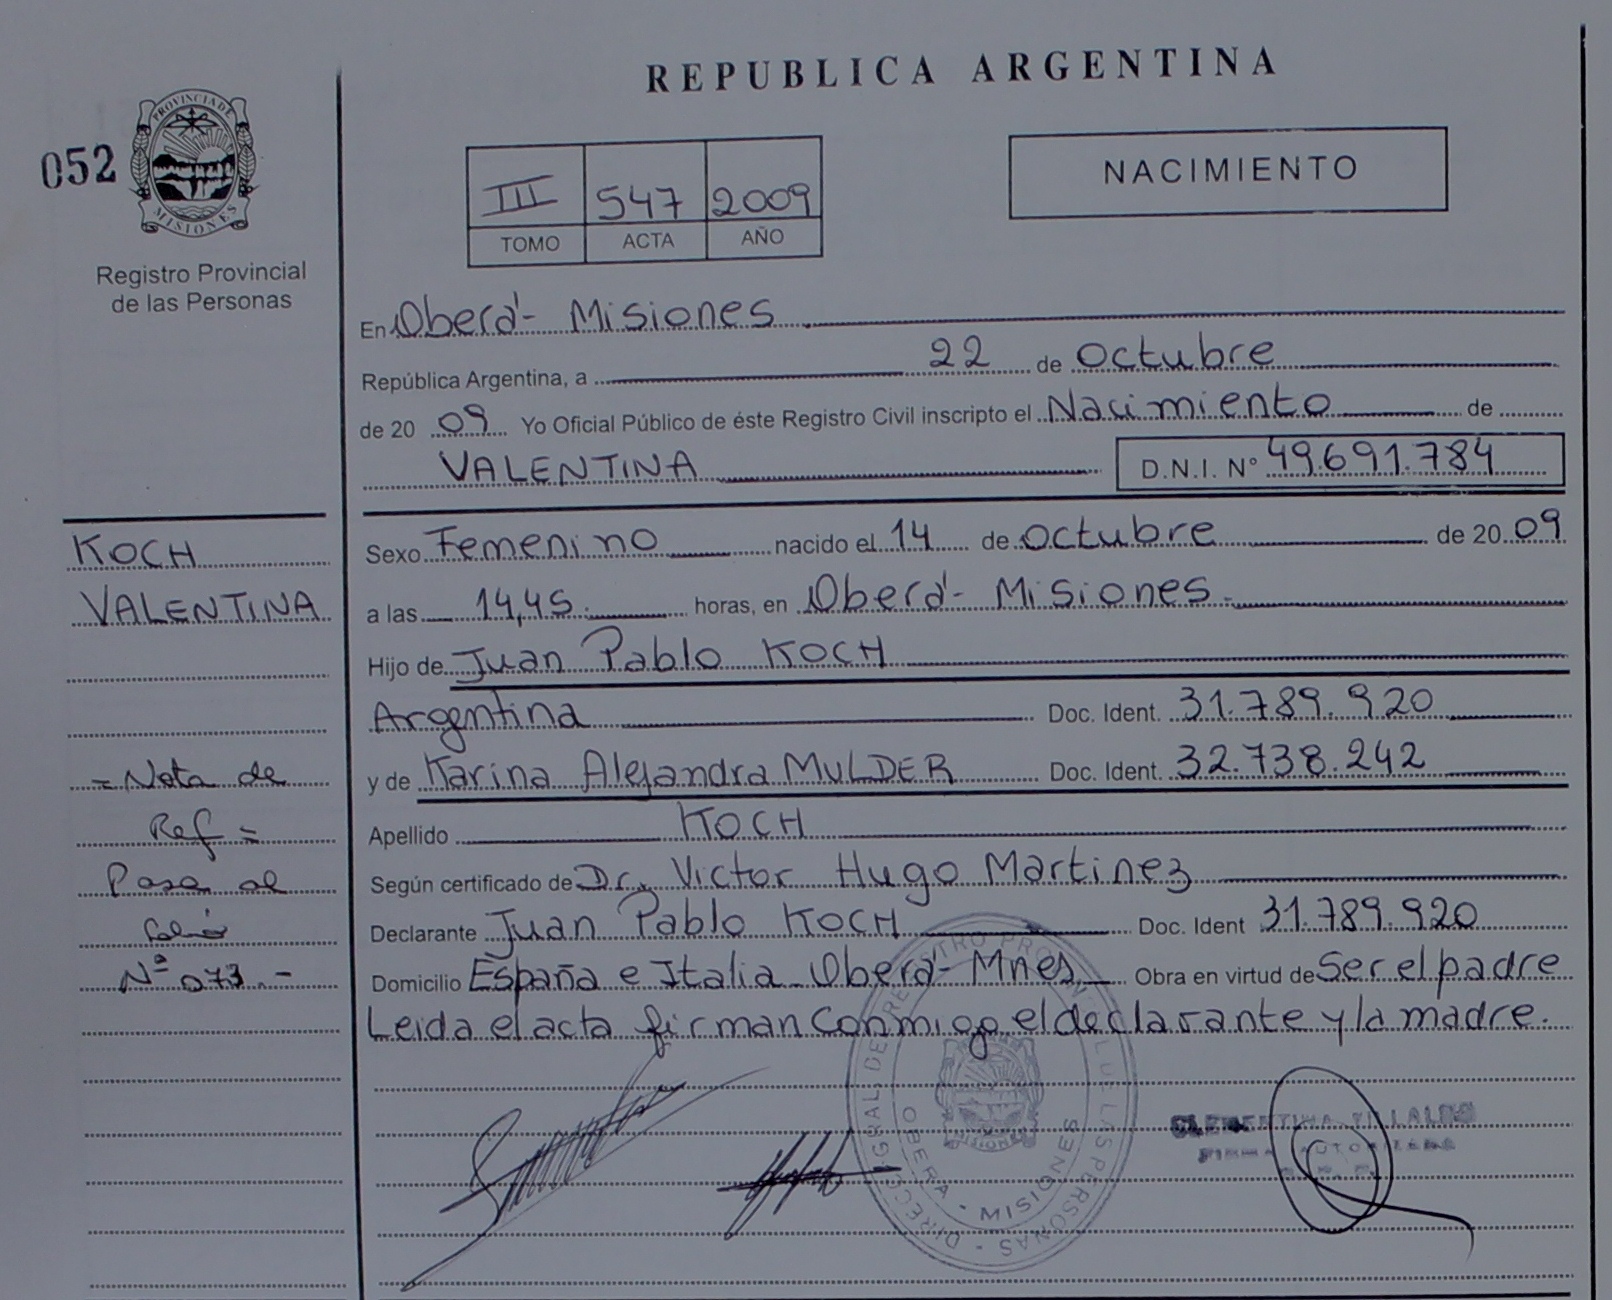 REPUBLICA ARGENTINA
052
PROVINCIA DE
MISIONES
Registro Provincial
de las Personas
III 547 2009
TOMO ACTA AÑO
NACIMIENTO
En Oberá - Misiones
República Argentina, a 22 de Octubre
de 20 09 Yo Oficial Público de éste Registro Civil inscripto el Nacimiento de
VALENTINA D.N.I. Nº 49.691.784
KOCH
VALENTINA
= Nota de
Ref =
Pasa al
folio
Nº 073.-
Sexo Femenino nacido el 14 de Octubre de 20 09
a las 14,45 horas, en Oberá - Misiones.
Hijo de Juan Pablo KOCH
Argentina Doc. Ident. 31.789.920
y de Karina Alejandra MULDER Doc. Ident. 32.738.242
Apellido KOCH
Según certificado de Dr. Victor Hugo Martinez
Declarante Juan Pablo KOCH Doc. Ident 31.789.920
Domicilio España e Italia Oberá - Mnes. Obra en virtud de Ser el padre
Leida el acta firman Conmigo el declarante y la madre.
OBERA - MISIONES
CLEMENTINA VILLALBA
FIRMA AUTORIZADA